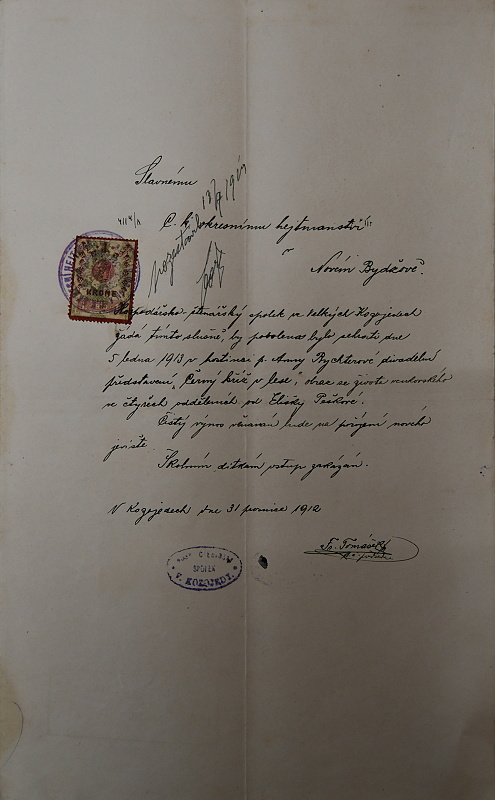 Slavnému
C. k. okresnímu hejtmanství
v
Novém Bydžově.
KRONE
Hospodářsko čtnářský spolek ve Velkých Kozojedech
žádá tímto slušně, by povoleno bylo sehráti dne
5 ledna 1913 v hostinci p. Anny Rychterové divadelní
představení, "Černý kříž v lese", obraz ze života venkovského
ve čtyřech odděleních od Elišky Peškové.
Čistý výnos věnován bude na pořízení nového
jeviště.
Školním dítkám vstup zakázán.
V Kozojedech dne 31 prosince 1912
Fr. Tomášek
SPOLEK
V. KOZOJEDY.